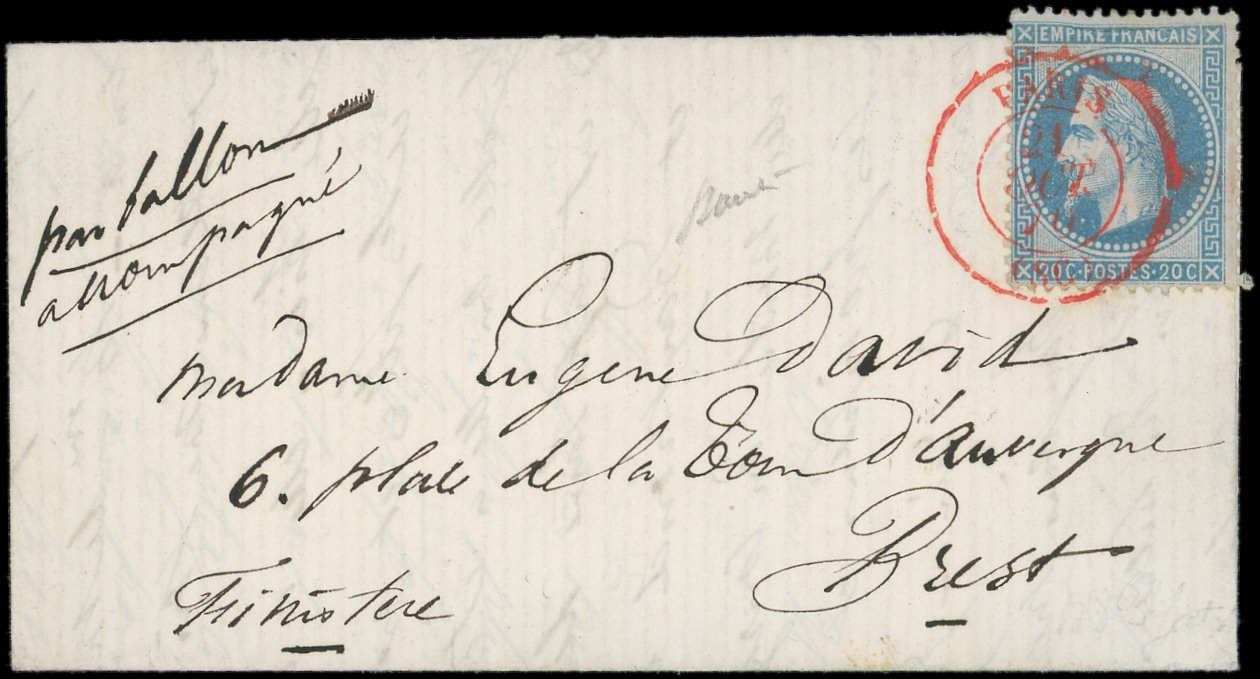 EMPIRE FRANCAIS
PARIS
21
OCT.
(SC)
20 C · POSTES · 20 C
par ballon
accompagné
Madame Eugene David
6. place de la Tour d'auvergne
Brest
Finistere